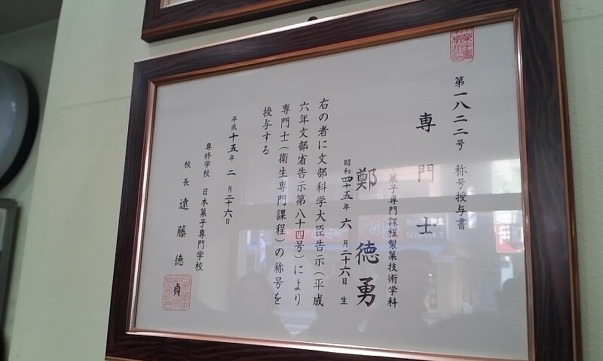 第一八二二号 称号授与書
専門士
菓子専門課程製菓技術学科
鄭徳勇
昭和四十五年 六 月二十六日 生
右の者に文部科学大臣告示（平成
六年文部省告示第八十四号）により
専門士（衛生専門課程）の称号を
授与する
平成 十五年 二 月二十六日
専修学校 日本菓子専門学校
校長 遠藤徳貞